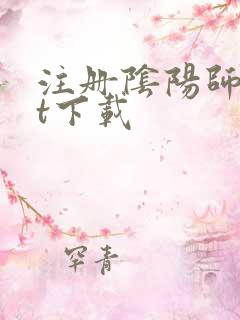 注册陰陽師
t下載
罕青